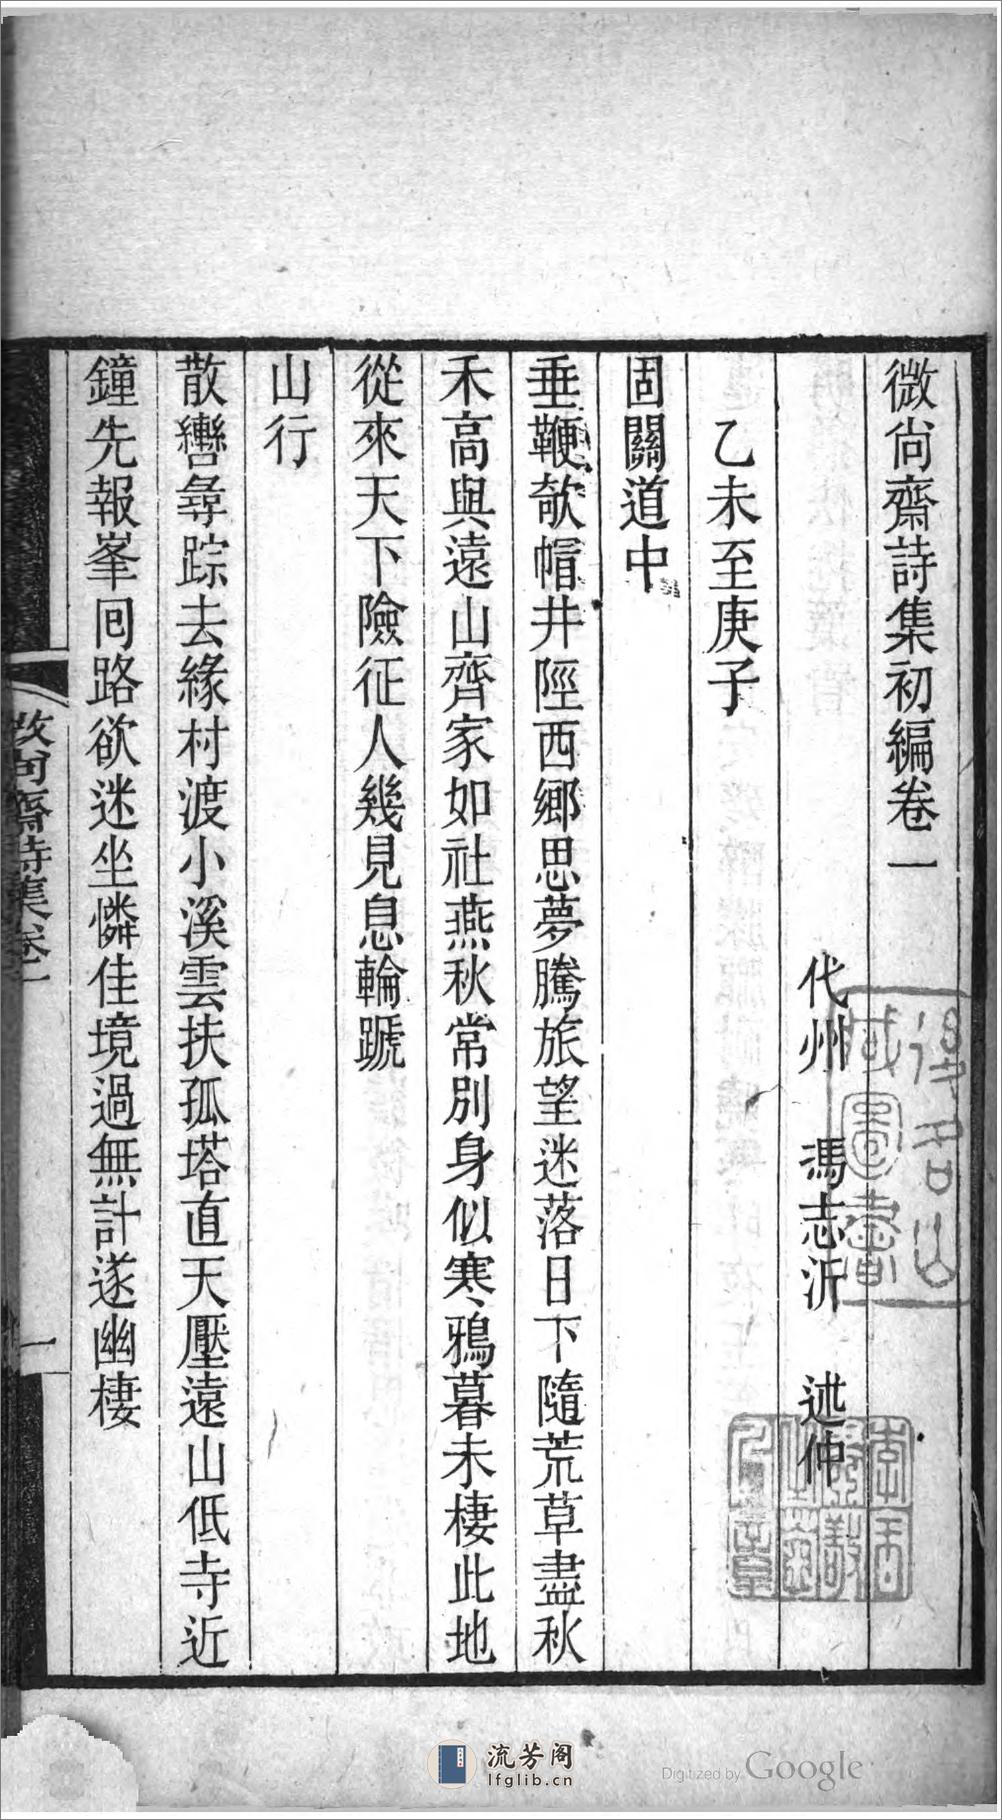 微尚齋詩集初編卷一
代州 馮志沂 述仲
乙未至庚子
固關道中
垂鞭欹帽井陘西鄉思夢騰旅望迷落日下隨荒草盡秋
禾高與遠山齊家如社燕秋常別身似寒鴉暮未棲此地
從來天下險征人幾見息輪蹏
山行
散轡尋踪去緣村渡小溪雲扶孤塔直天壓遠山低寺近
鐘先報峯囘路欲迷坐憐佳境過無計遂幽棲
微尚齋詩集卷一
一
藏圖書
流芳阁
lfglib.cn
Digitized by Google